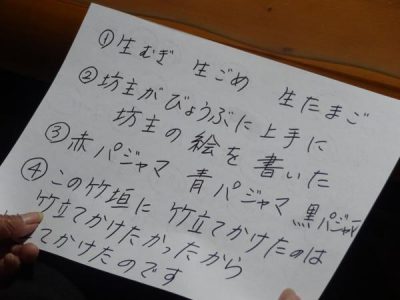 ①生むぎ 生ごめ 生たまご
②坊主がびょうぶに上手に
坊主の絵を書いた
③赤パジャマ 青パジャマ 黒パジャマ
④この竹垣に竹立てかけたのは
竹立てかけたかったから
てかけたのです